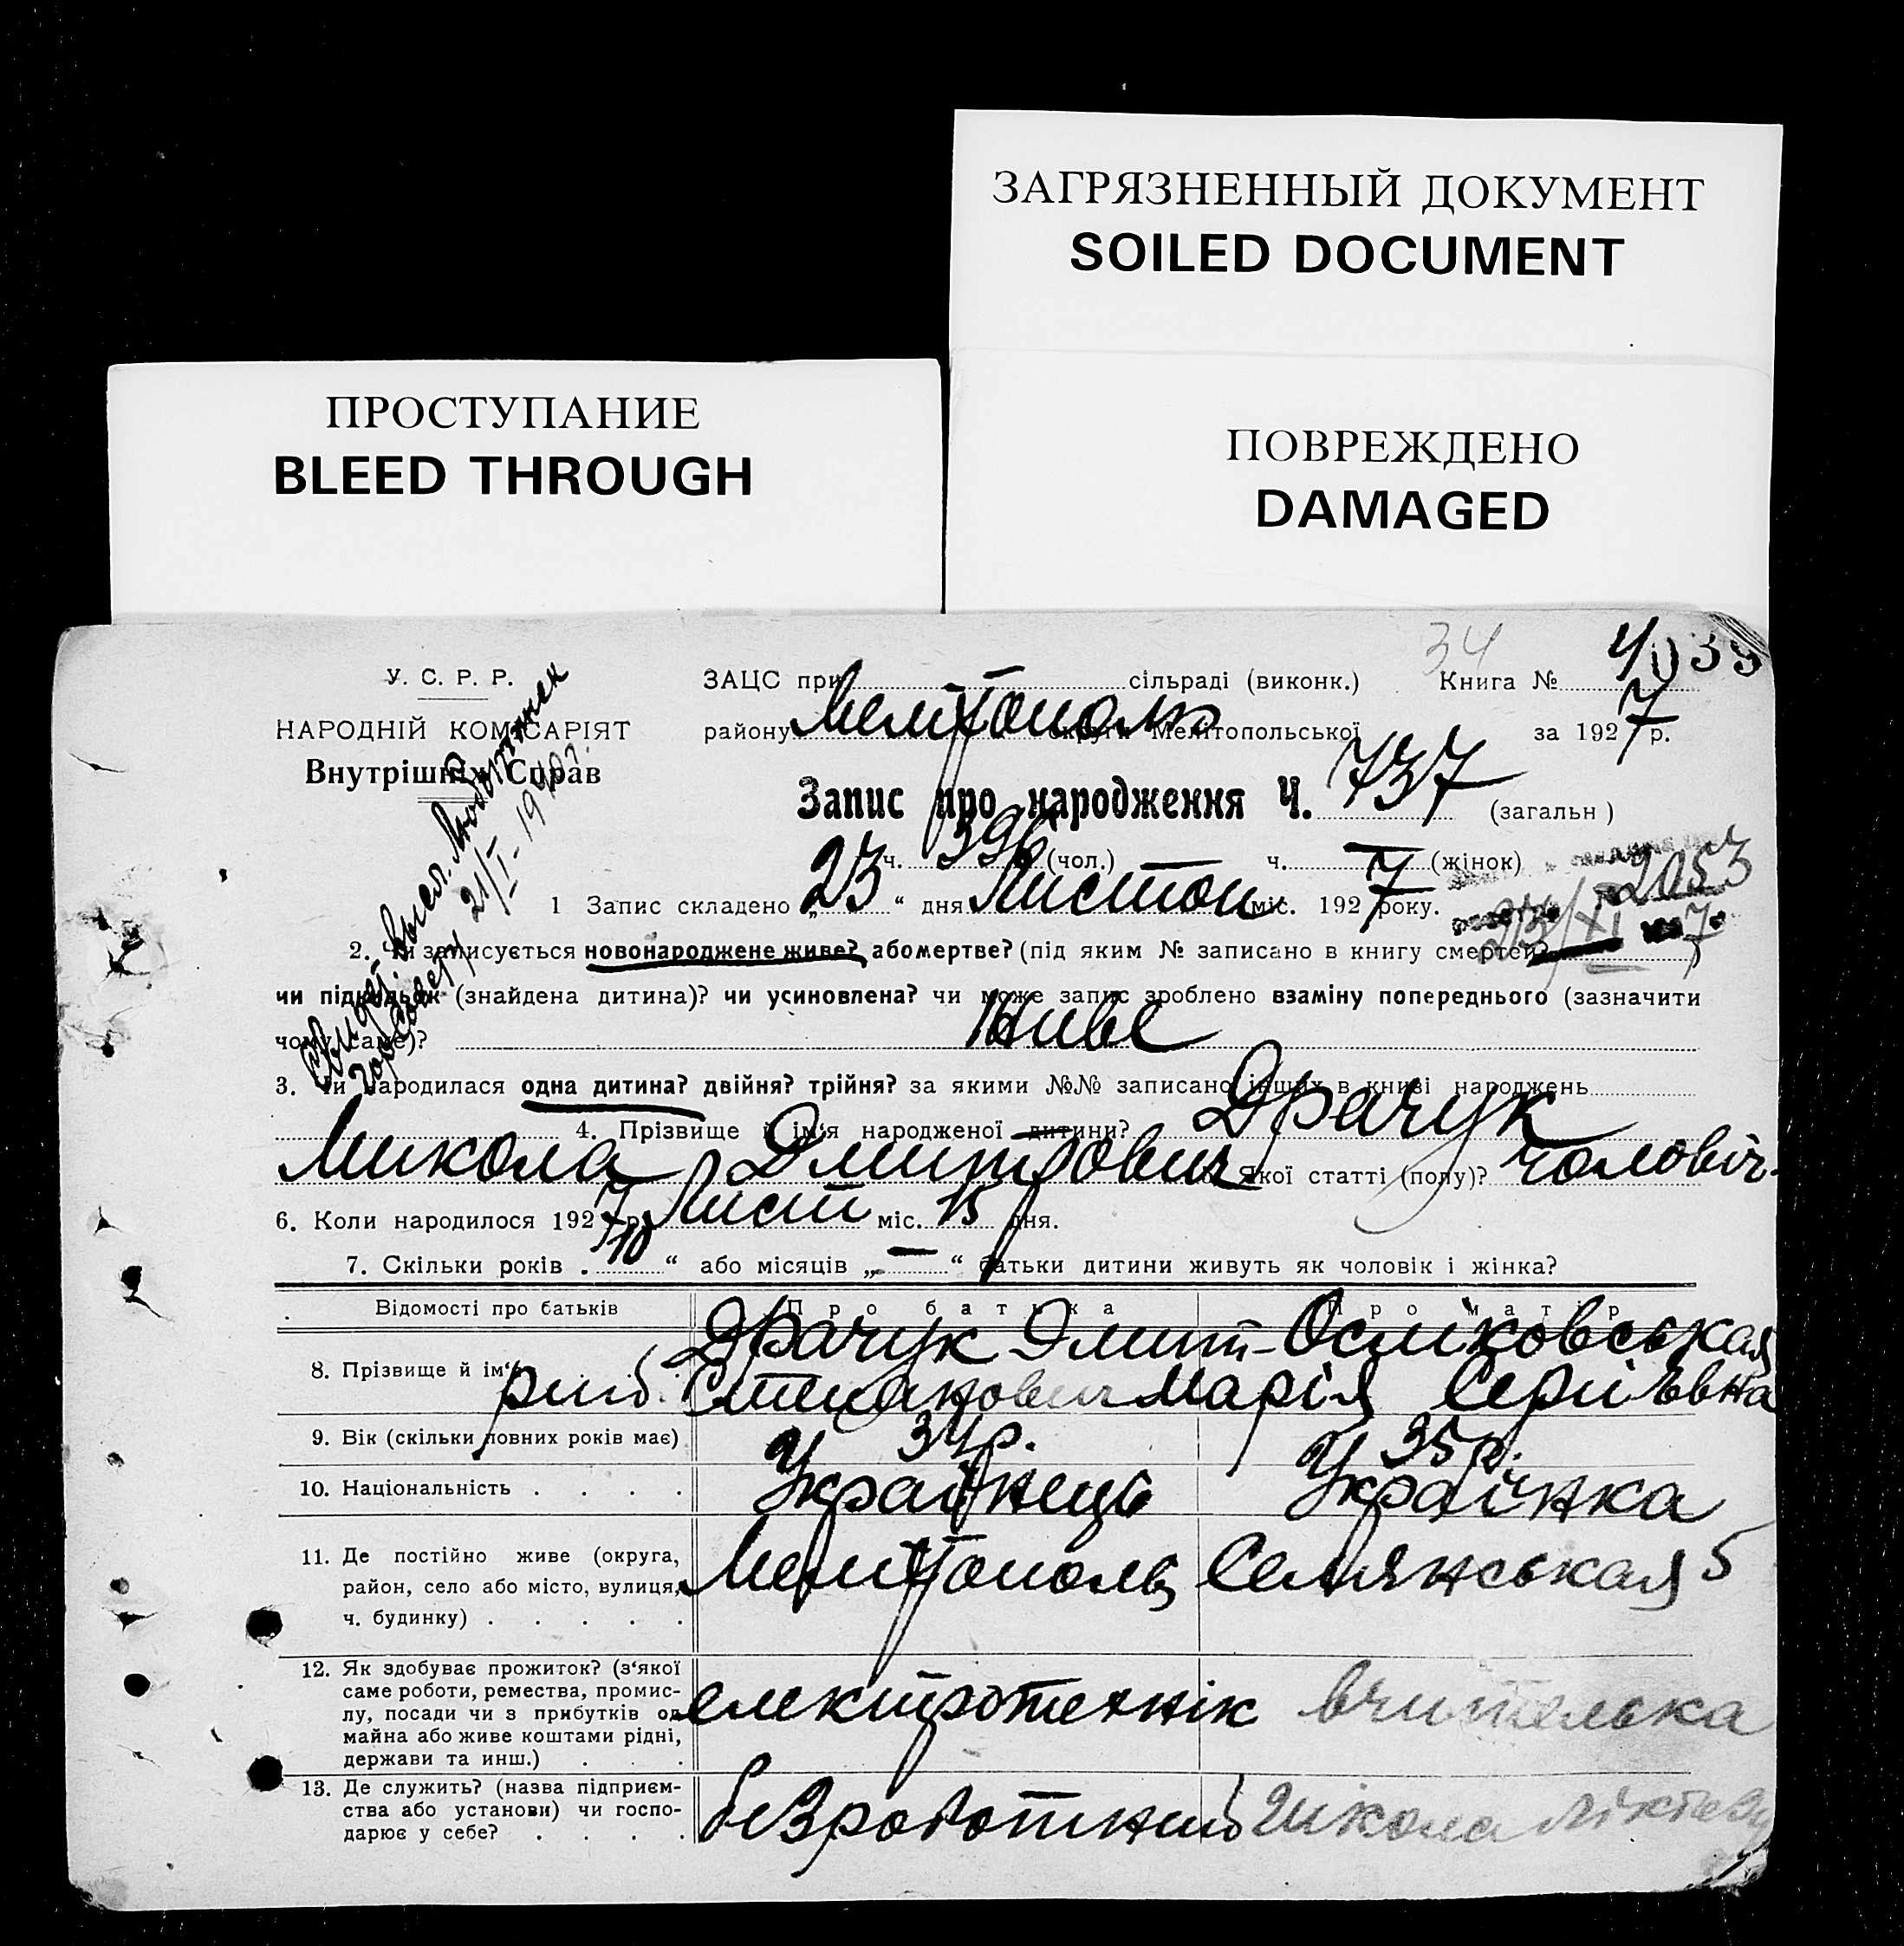 ЗАГРЯЗНЕННЫЙ ДОКУМЕНТ
SOILED DOCUMENT
ПРОСТУПАНИЕ
BLEED THROUGH
ПОВРЕЖДЕНО
DAMAGED
34
4039
У. С. Р. Р.
НАРОДНІЙ КОМІСАРІЯТ
Внутрішніх Справ
ЗАЦС при сільраді (виконк.) Книга №
району Мелітополь округи Мелітопольської за 1927 р.
Запис про народження Ч. 737 (загальн)
ч. 396 (чол.) ч. — (жінок)
2053
1 Запис складено „23“ дня Листоп міс. 1927 року.
23/XI 7
2. Чи записується новонароджене живе? або мертве? (під яким № записано в книгу смертей? — )
чи підкидьок (знайдена дитина)? чи усиновлена? чи може запис зроблено взаміну попереднього (зазначити
чому саме)? Живе
3. Чи народилася одна дитина? двійня? трійня? за якими №№ записано інших в книзі народжень
4. Прізвище й ім'я народженої дитини? Драчук
Микола Дмитрович Якої статті (полу)? чоловіч.
6. Коли народилося 1927 р. Лист міс. 15 дня.
7. Скільки років „10“ або місяців „—“ батьки дитини живуть як чоловік і жінка?
Відомості про батьків Про батька Про матір
8. Прізвище й ім'я
Драчук Дмит-
Степанович
Марія
9. Вік (скільки повних років має) 34р. 35р.
10. Національність Українець Українка
11. Де постійно живе (округа,
район, село або місто, вулиця,
ч. будинку)
Мелітополь 5
12. Як здобуває прожиток? (з'якої
саме роботи, ремества, промис-
лу, посади чи з прибутків од
майна або живе коштами рідні,
держави та инш.)
електротехнік вчителька
13. Де служить? (назва підприєм-
ства або установи) чи госпо-
дарює у себе?
безроботний Школа
21/I-1940г.